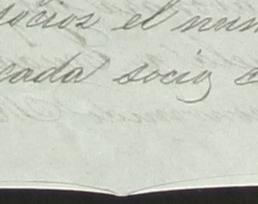 socios el num
cada socio c